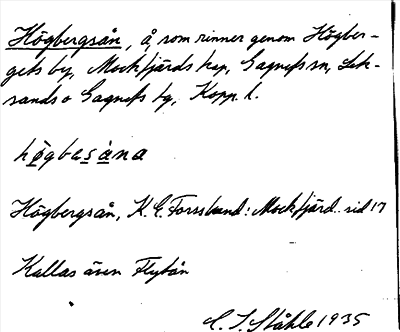 Högbergsån, å, som rinner genom Högber-
gets by, Mockfjärds kap, Gagnefs sn, Lek-
sands o Gagnefs tg, Kopp. l.
högbesåna
Högbergsån, K. E. Forsslund: Mockfjärd. sid 17
Kallas även Flytån
C. I. Ståhle 1935